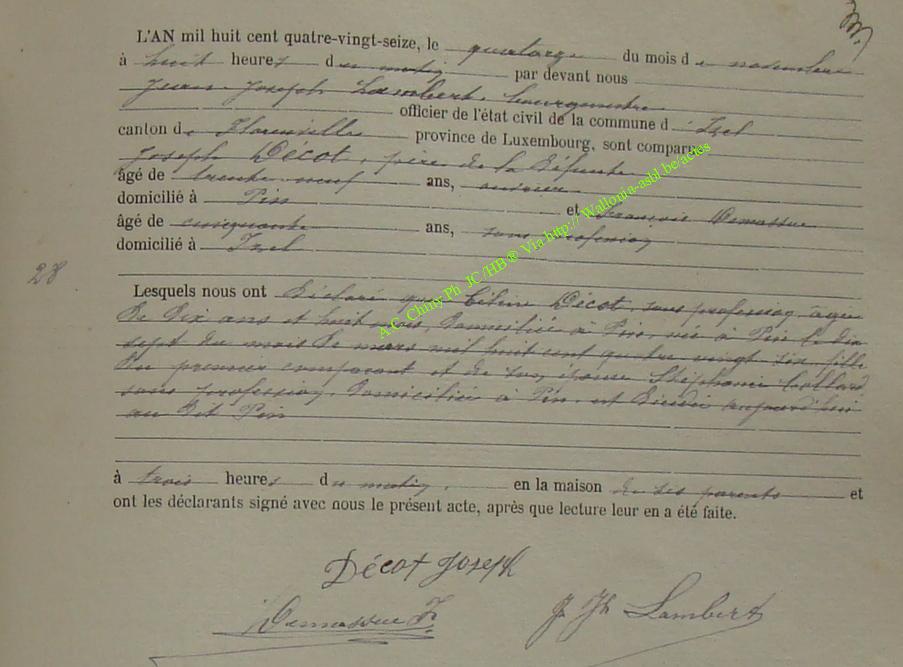 L'AN mil huit cent quatre-vingt-seize, le quatorze du mois de novembre
à huit heures du matin par devant nous
Jean-Joseph Lambert, bourgmestre
officier de l'état civil de la commune d'Izel
canton de Florenville province de Luxembourg, sont comparus
Joseph Décot, père de la Défunte
âgé de trente neuf ans, ouvrier
domicilié à Pin et François Demassue
âgé de cinquante ans, sans profession
domicilié à Izel
28
Lesquels nous ont Déclaré que Céline Décot, sans profession, âgée
De Dix ans et huit mois, Domiciliée à Pin, née à Pin le dix
sept du mois De mars mil huit cent quatre vingt six, fille
Du premier comparant et de son épouse Stéphanie Collard
sans profession, Domiciliée à Pin, est Décédée aujourd'hui
au Dit Pin
à trois heures du matin, en la maison de ses parents et
ont les déclarants signé avec nous le présent acte, après que lecture leur en a été faite.
Décot Joseph
Demassue F
J. Jh Lambert
A.C. Chiny Ph JC/HB ® Via http://Wallonia-asbl.be/actes